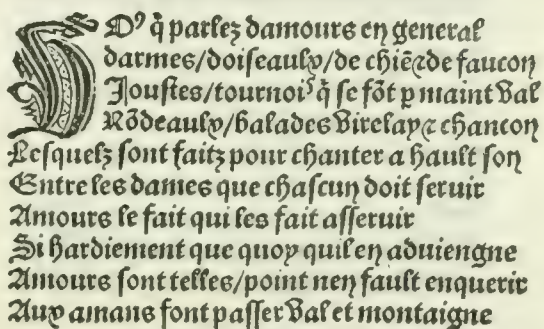 Vo⁹ q̃ parlez damours en general
darmes/doiseaulx/de chiẽ⁊de faucon
Joustes/tournoiˢ q̃ se fõt p maint val
Rõdeaulx/balades virelay⁊ chancon
Lesquelz sont faitz pour chanter a hault son
Entre les dames que chascun doit seruir
Amours le fait qui les fait asseruir
Si hardiement que quoy quil en aduiengne
Amours sont telles/point nen fault enquerir
Aux amans font passer val et montaigne